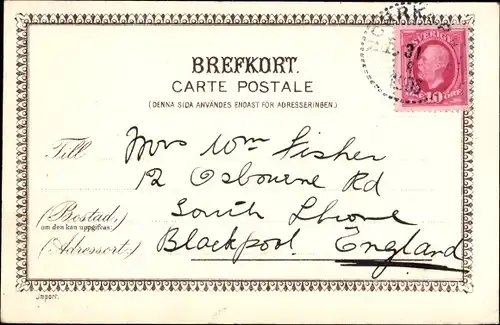 BREFKORT.
CARTE POSTALE
(DENNA SIDA ANVÄNDES ENDAST FÖR ADRESSERINGEN.)
SVERIGE
31
10 ÖRE
Till
Mrs Wm Fisher
12 Osbourne Rd
South Shore
(Bostad,
om den kan uppgifvas)
Blackpool. England
(Adressort.)
Import.